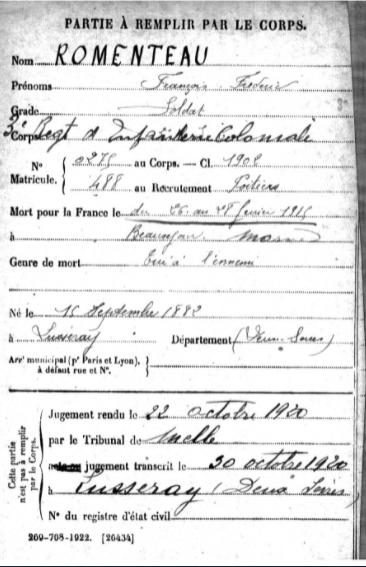 PARTIE À REMPLIR PAR LE CORPS.
Nom ROMENTEAU
Prénoms François Frédéric
Grade Soldat
Corps Regt d'Infanterie Coloniale
N° au Corps. — Cl. 1902
Matricule. 488 au Recrutement Poitiers
Mort pour la France le du 26 au 28 février 1915
à Beauséjour Marne
Genre de mort Tué à l'ennemi
Né le 15 Septembre 1882
à Lusseray Département (Deux Sèvres)
Arrt municipal (pr Paris et Lyon),
à défaut rue et N°.
Cette partie
n'est pas à remplir
par le Corps.
Jugement rendu le 22 octobre 1920
par le Tribunal de Melle
jugement transcrit le 30 octobre 1920
à Lusseray (Deux Sèvres)
N° du registre d'état civil
269-708-1922. [26434]